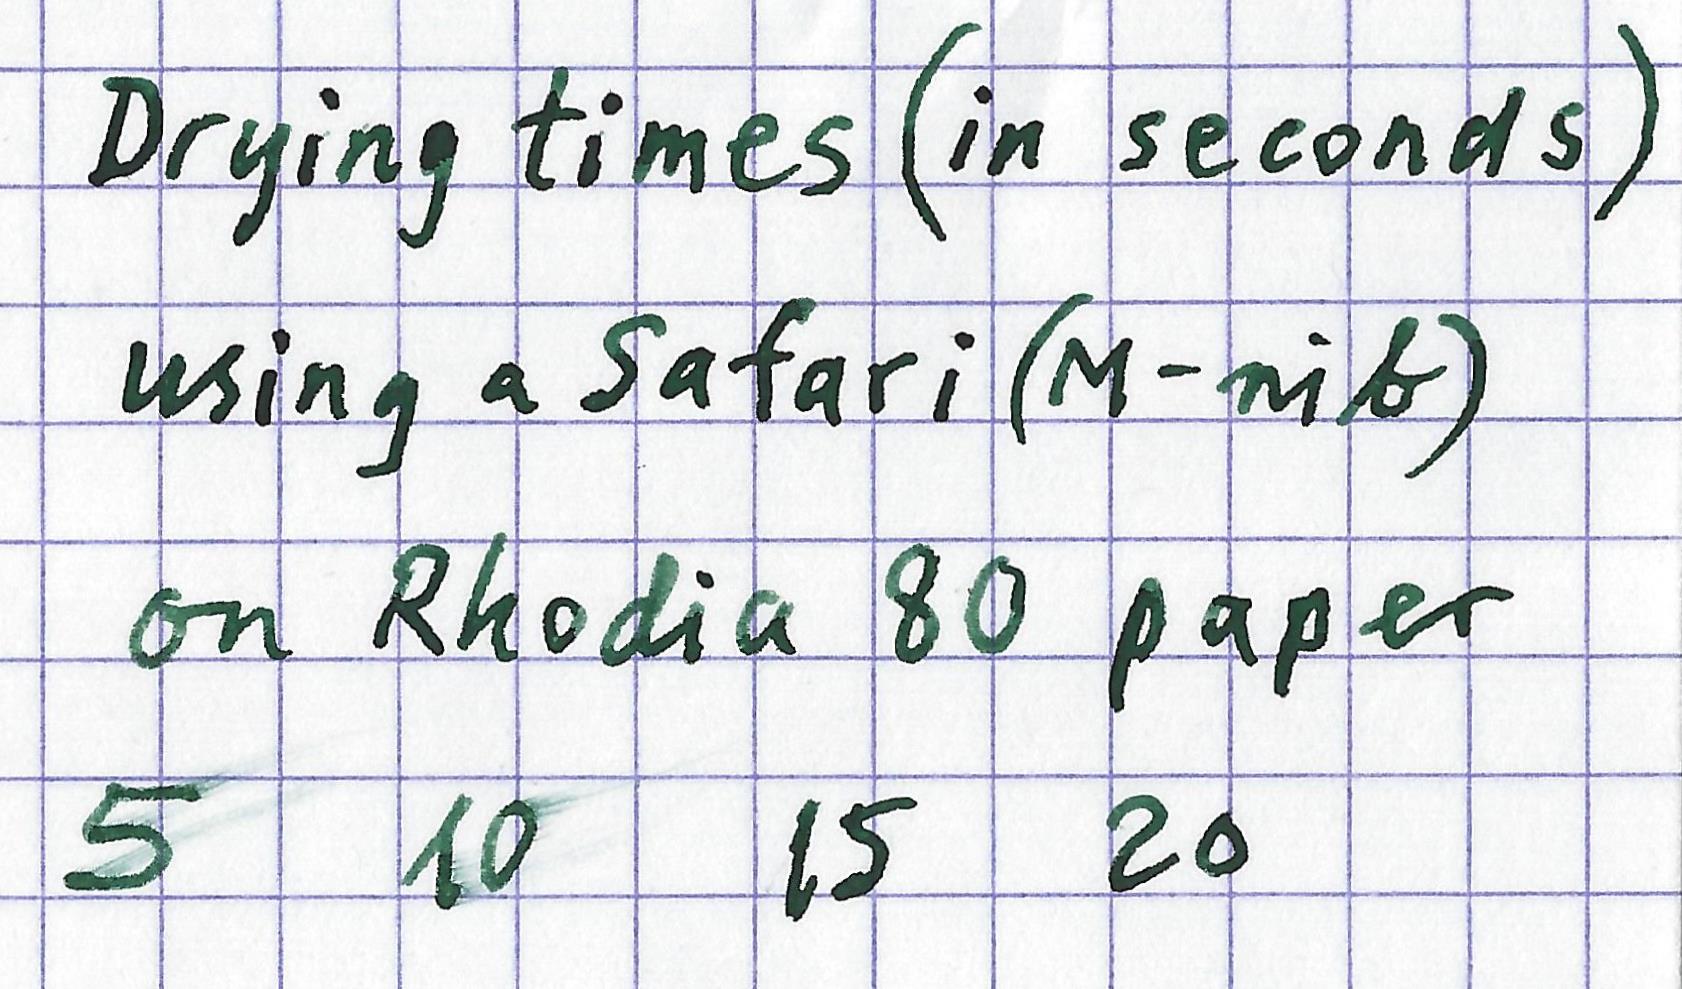 Drying times (in seconds)
using a Safari (M-nib)
on Rhodia 80 paper
5 10 15 20